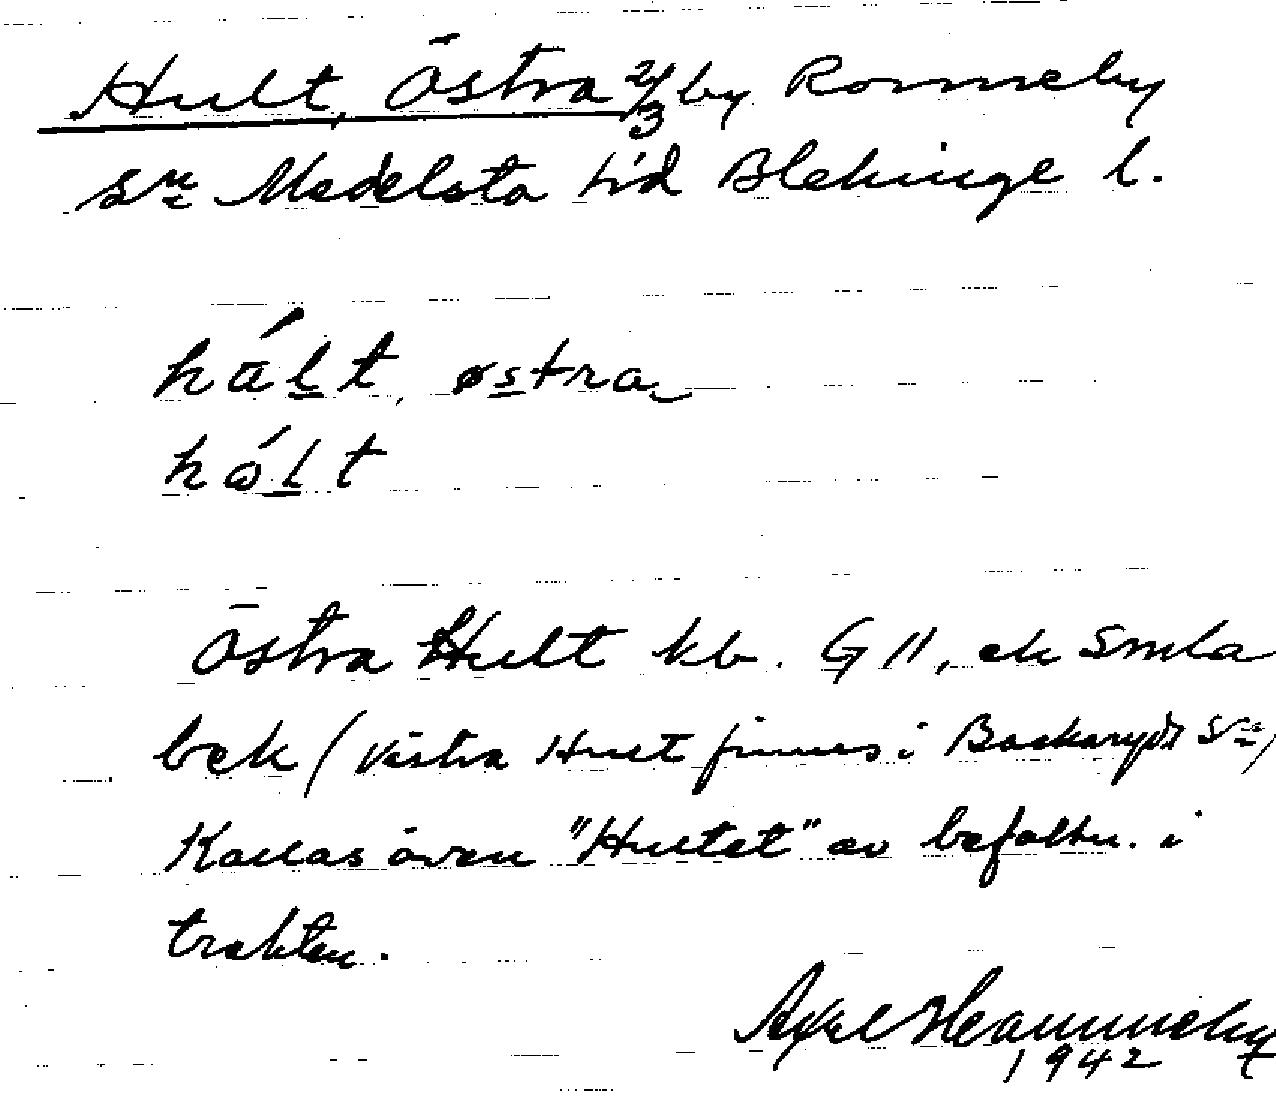 Hult, Östra 2/3 by Ronneby
sn Medelsta hd Blekinge l.
hált, østra
hólt
Östra Hult kb. G 11, ek Smla
bek (Västra Hult finnes i Backaryds sn)
Kallas även "Hultet" av befolkn. i
trakten.
Axel
1942